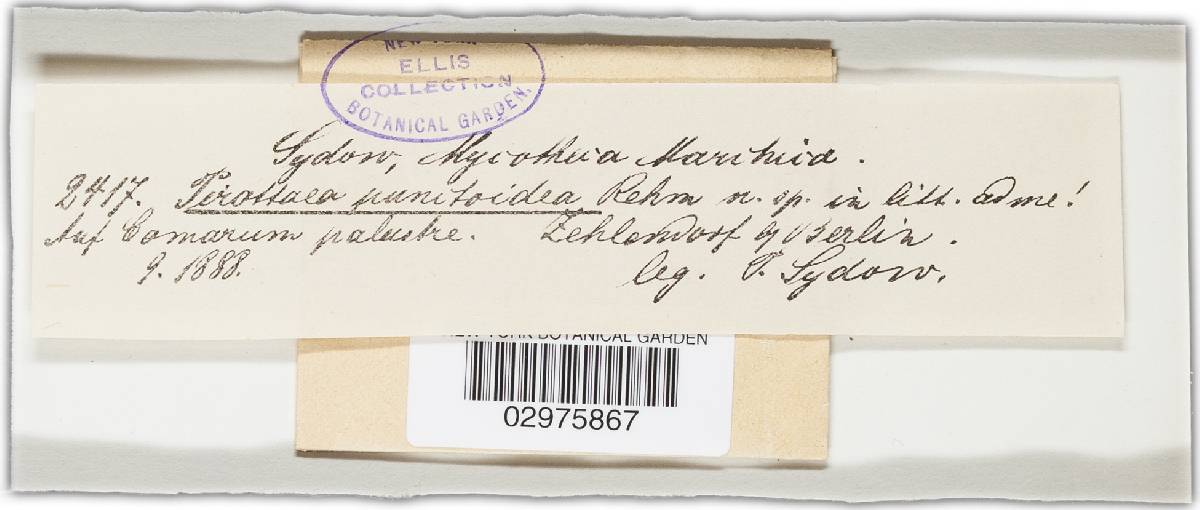 NEW YORK
ELLIS
COLLECTION
BOTANICAL GARDEN.
Sydow, Mycotheca Marchica.
2417. Pirottaea punitoidea Rehm n. sp. in litt. ad me!
Auf Comarum palustre. Zehlendorf b/ Berlin.
9. 1888. leg. P. Sydow.
NEW YORK BOTANICAL GARDEN
02975867